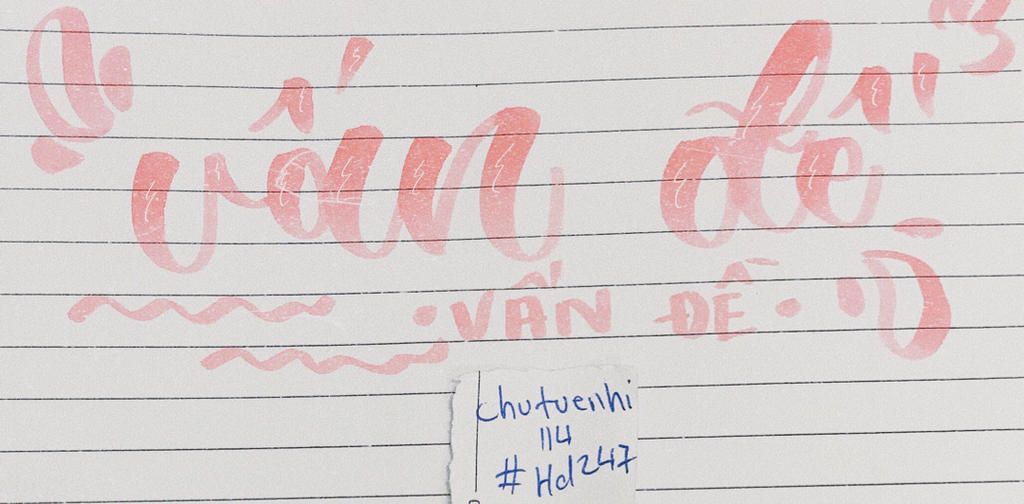 vấn đề
VẤN ĐỀ
chutuenhi
114
#Hd247